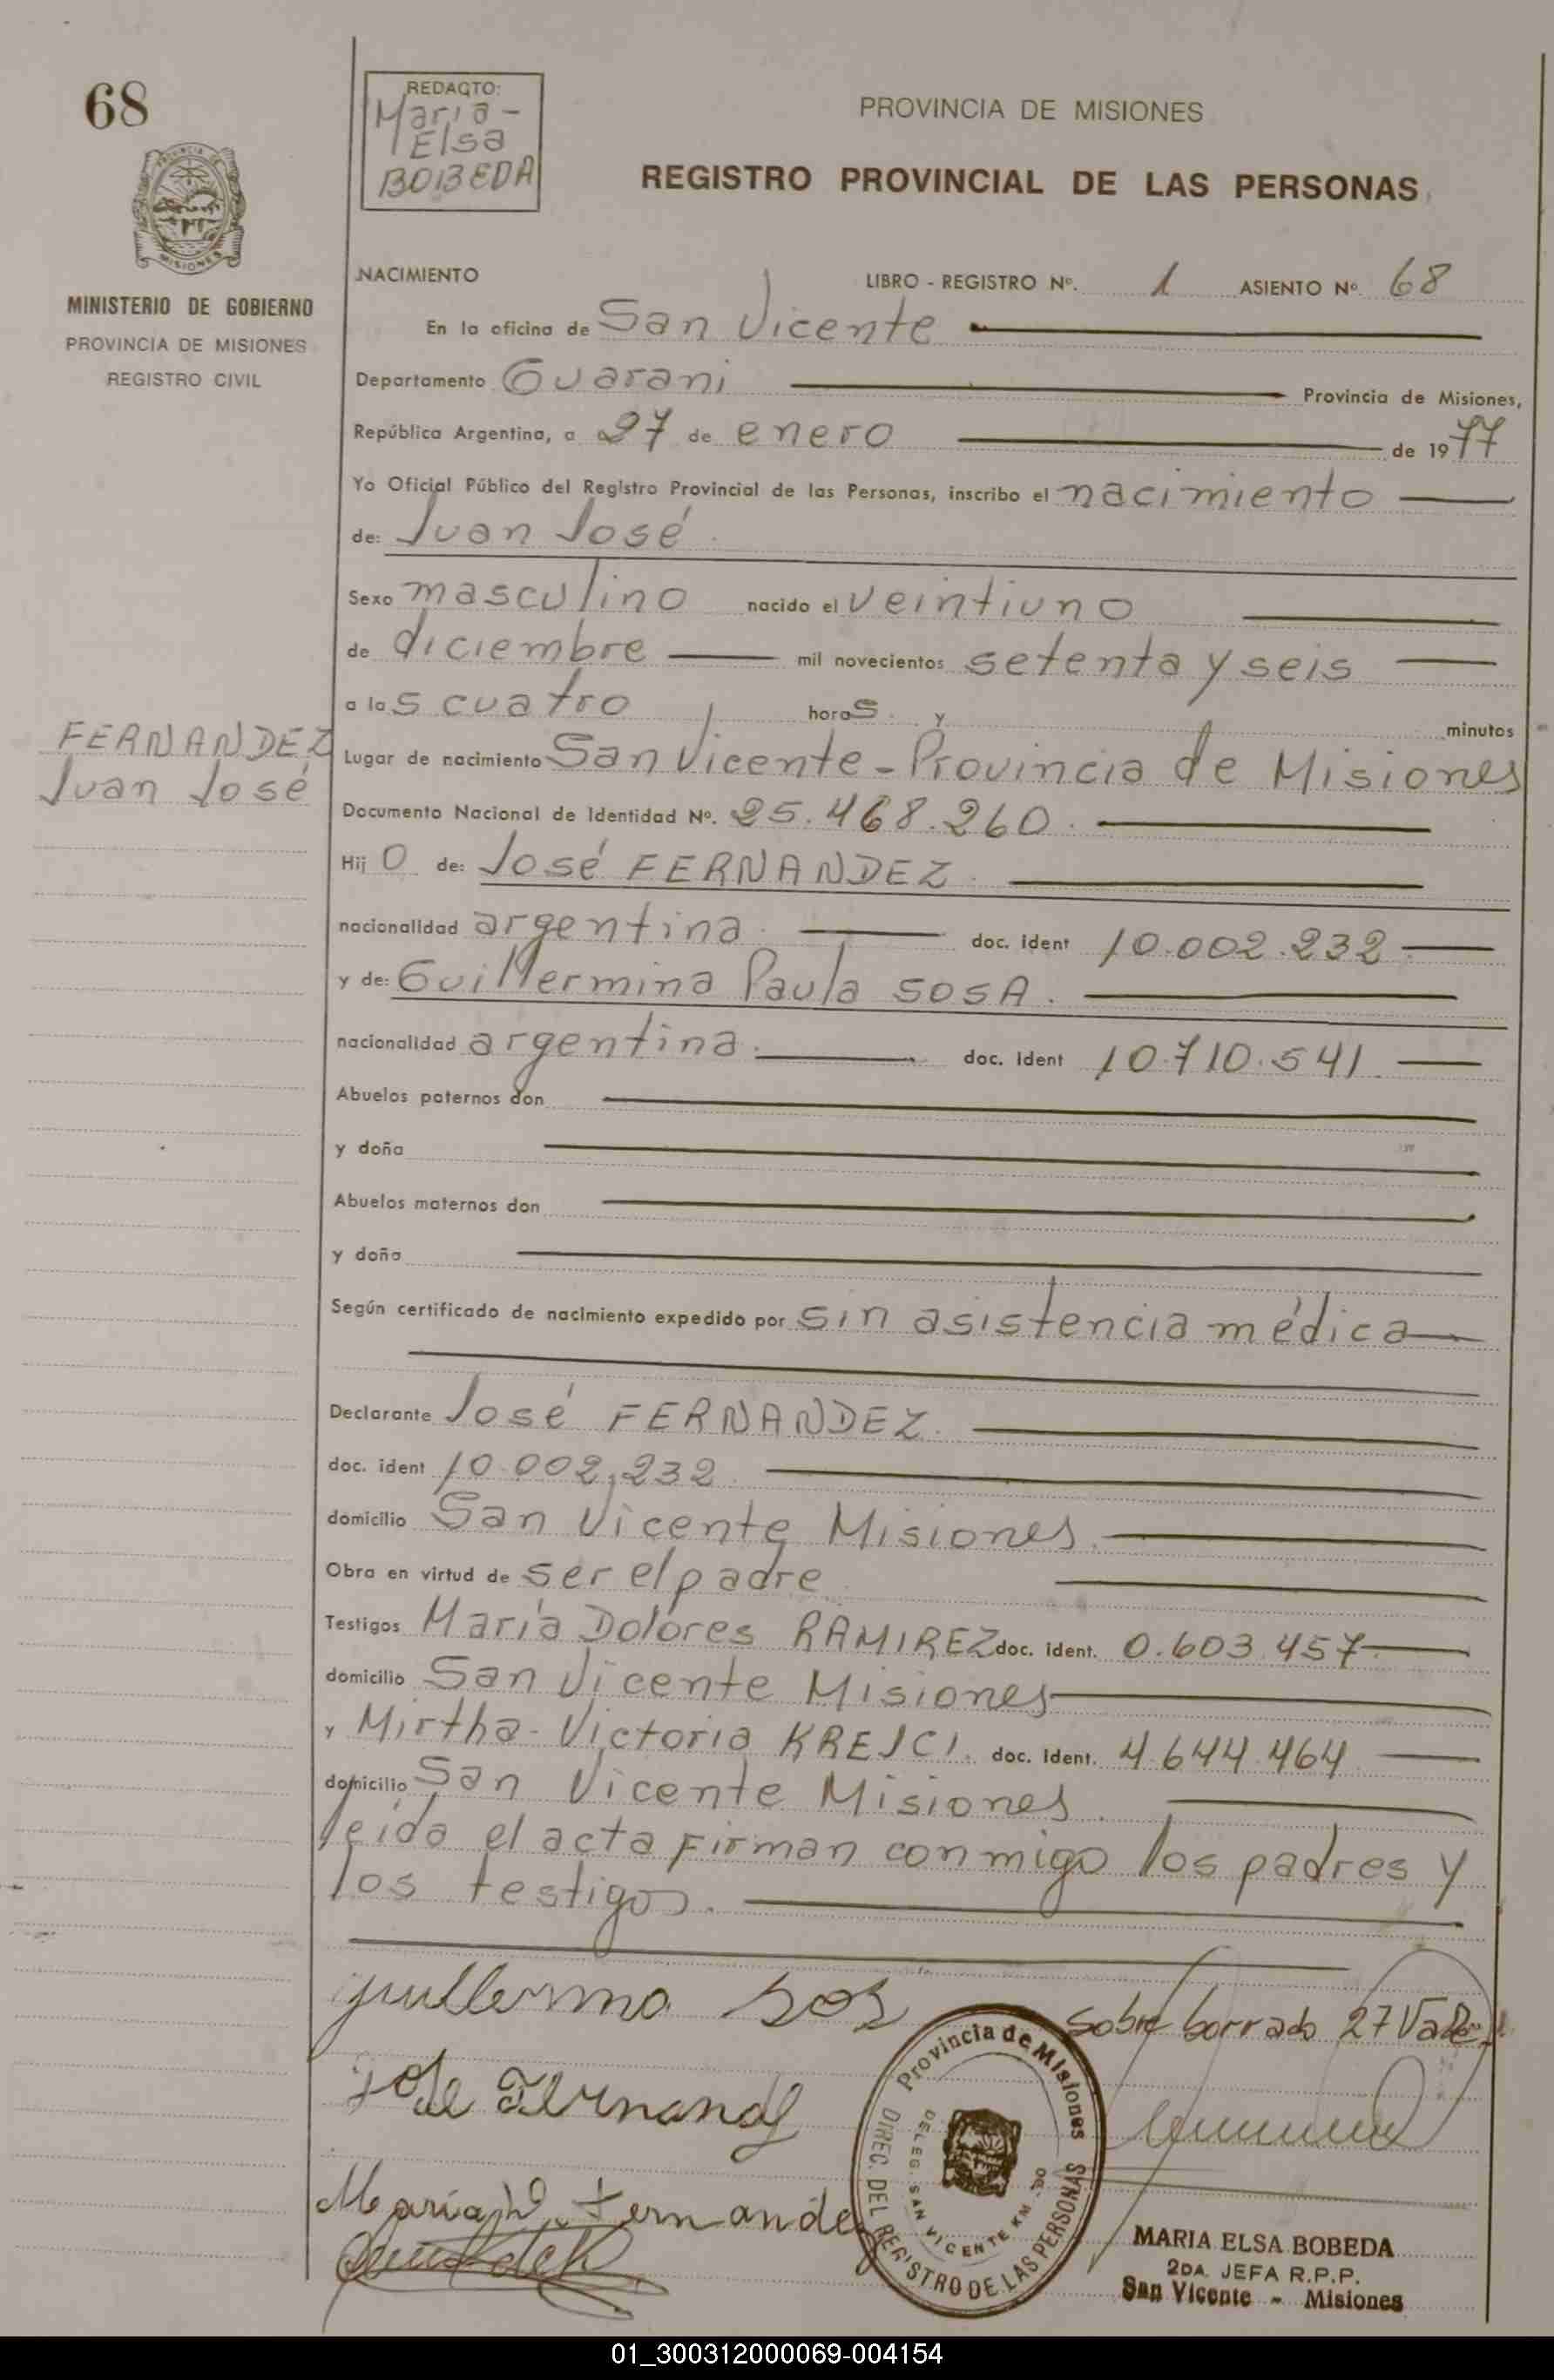 68
REDACTO:
Maria -
Elsa
BOBEDA
PROVINCIA DE MISIONES
REGISTRO PROVINCIAL DE LAS PERSONAS
PROVINCIA DE
MISIONES
MINISTERIO DE GOBIERNO
PROVINCIA DE MISIONES
REGISTRO CIVIL
NACIMIENTO LIBRO - REGISTRO Nº. 1 ASIENTO Nº. 68
En la oficina de San Vicente
Departamento Guarani Provincia de Misiones,
República Argentina, a 27 de enero de 1977
Yo Oficial Público del Registro Provincial de las Personas, inscribo el nacimiento
de: Juan José.
Sexo masculino nacido el veintiuno
de diciembre mil novecientos setenta y seis
a las cuatro horas. y minutos
FERNANDEZ
Juan José
Lugar de nacimiento San Vicente - Provincia de Misiones
Documento Nacional de Identidad Nº. 25.468.260.
Hijo de: José FERNANDEZ.
nacionalidad argentina. doc. ident 10.002.232.
y de: Guillermina Paula SOSA.
nacionalidad argentina. doc. ident 10.710.541.
Abuelos paternos don
y doña
Abuelos maternos don
y doña
Según certificado de nacimiento expedido por sin asistencia médica
Declarante José FERNANDEZ.
doc. ident 10.002.232.
domicilio San Vicente Misiones.
Obra en virtud de ser el padre.
Testigos María Dolores RAMIREZ doc. ident. 0.603.457.
domicilio San Vicente Misiones
y Mirtha-Victoria KREJCI. doc. ident. 4.644.464.
domicilio San Vicente Misiones.
leida el acta firman conmigo los padres y
los testigos.
guillermna sos
Sobre borrado 27 Vale.
Jose Fernandz
Maria D. Fernandez
Provincia de Misiones
DIREC. DEL REGISTRO DE LAS PERSONAS
DELEG. SAN VICENTE KM
MARIA ELSA BOBEDA
2DA. JEFA R.P.P.
San Vicente - Misiones
01_300312000069-004154